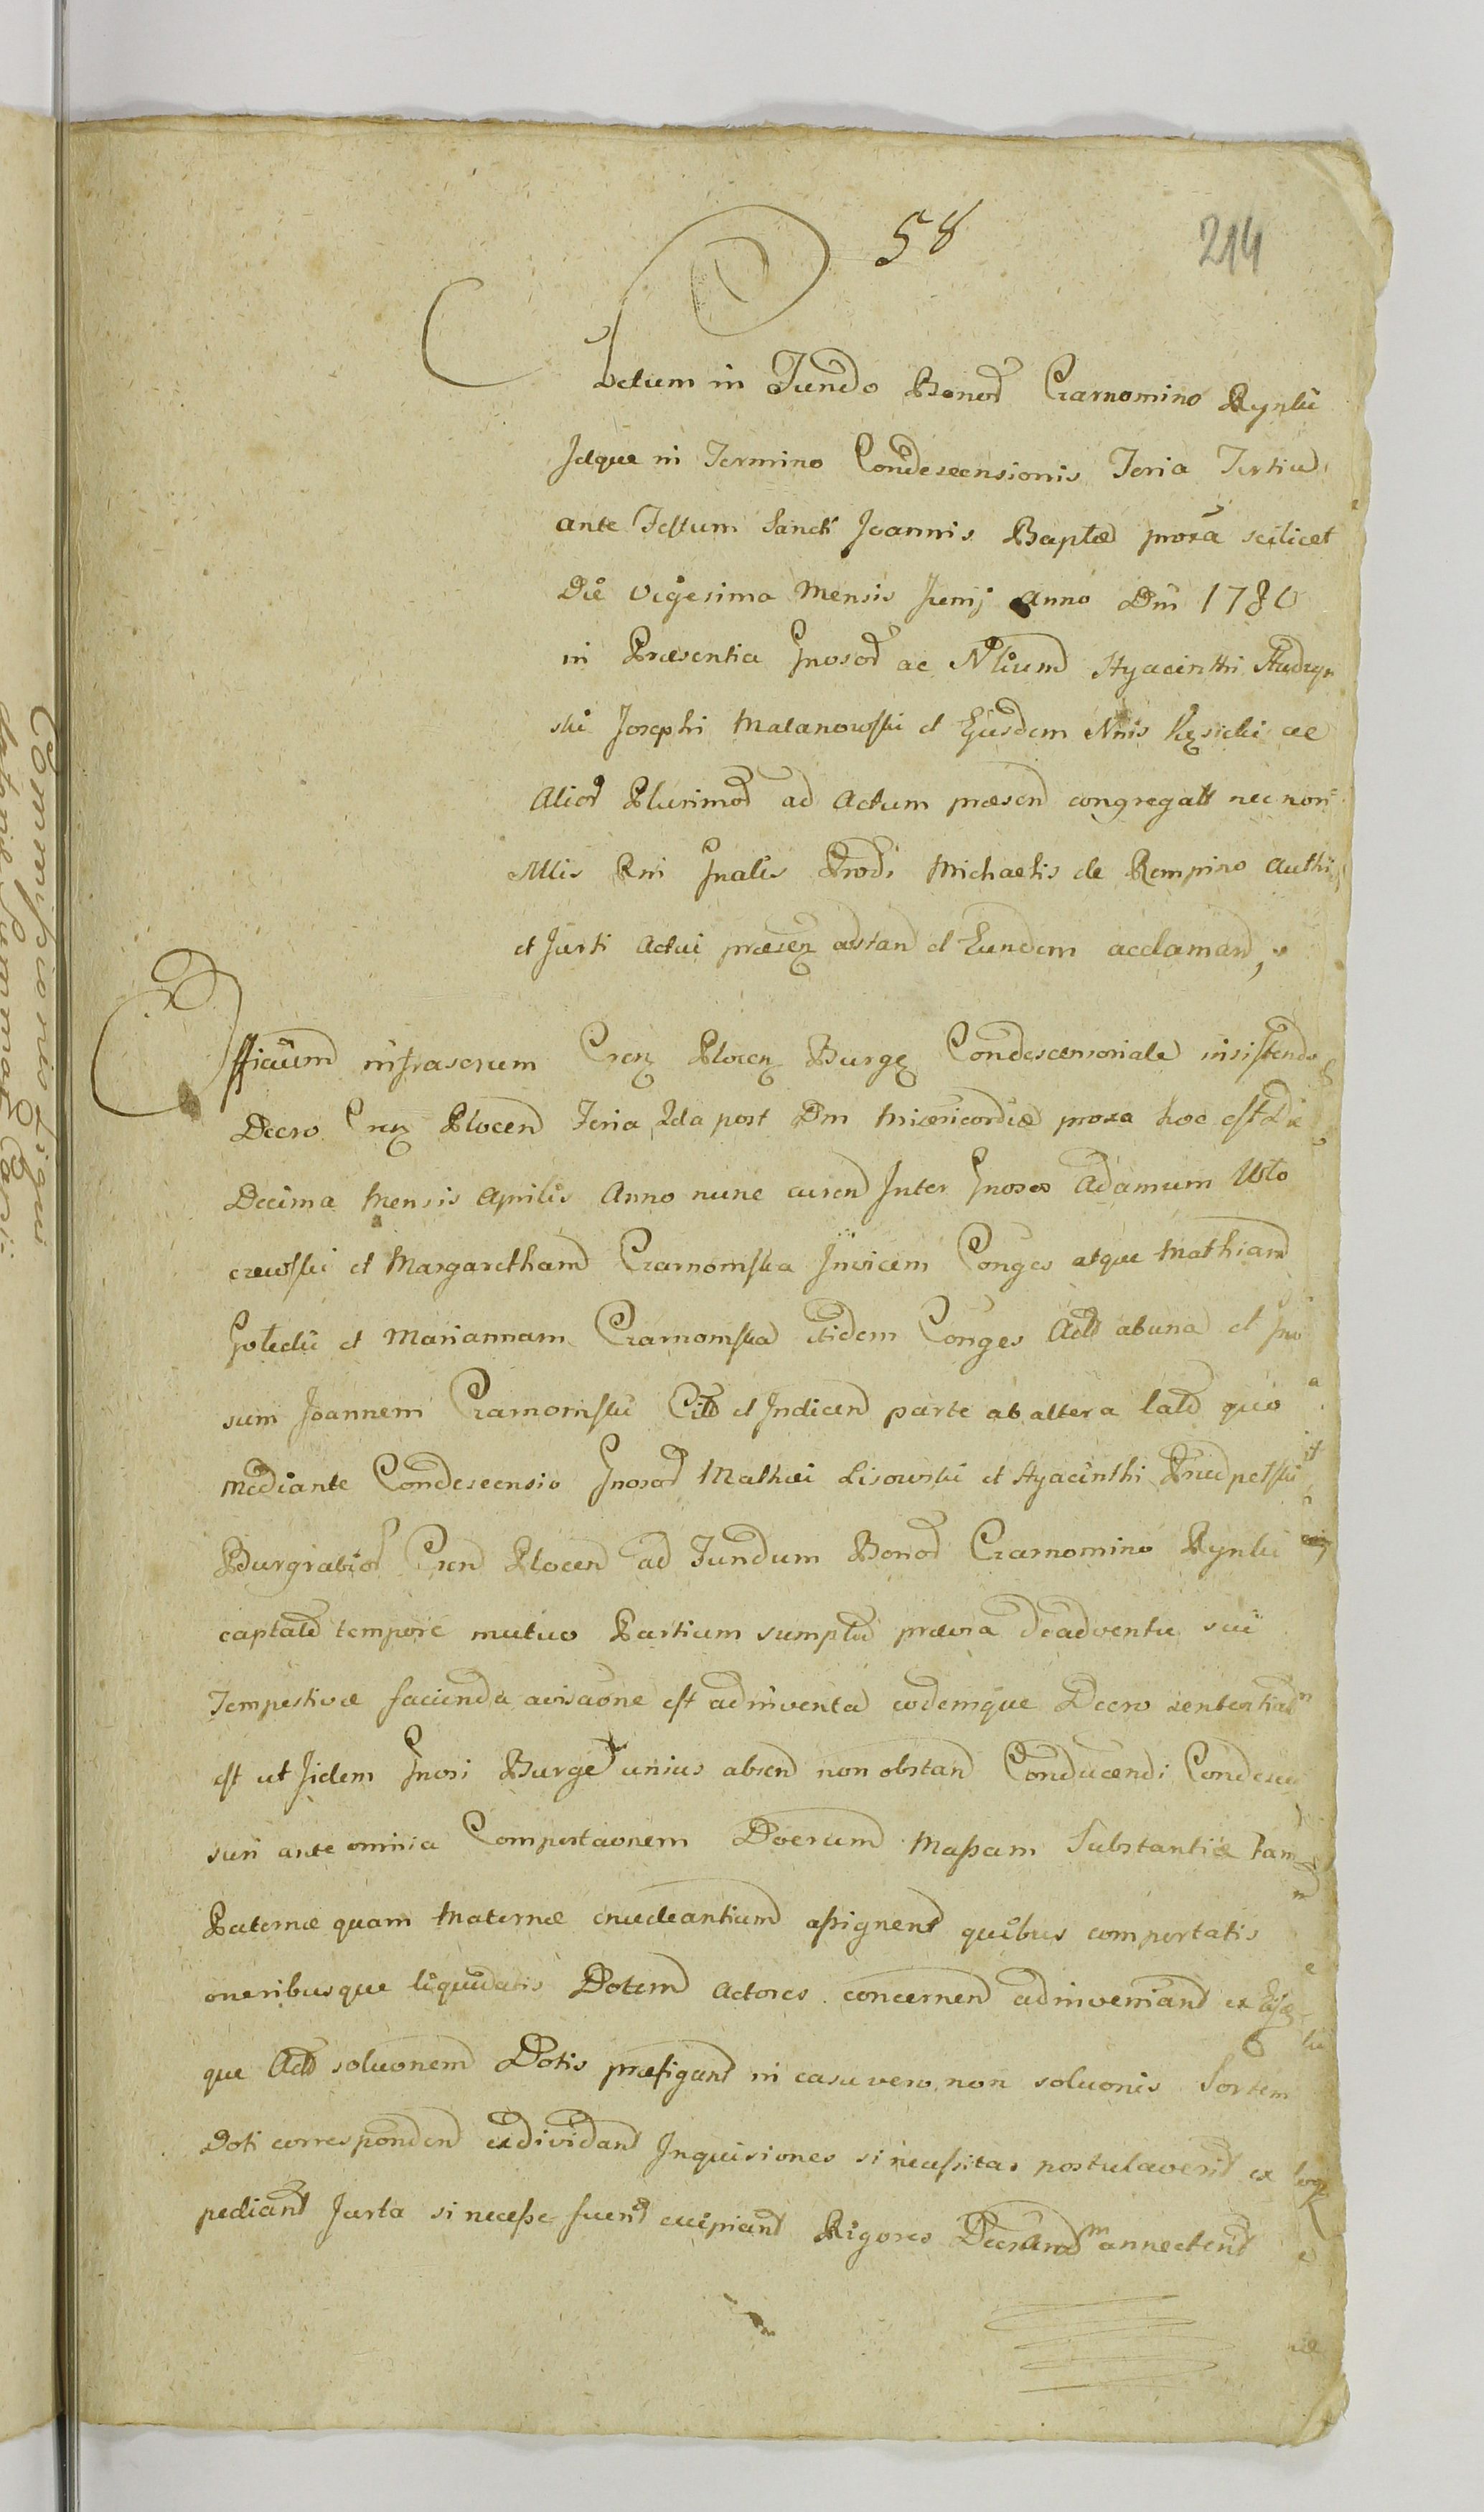 58
214
Actum in Fundo Bonor Czarnomino Rynki
Idque in Termino Condescensionis Feria Tertia
ante Festum Sancti Joannis Baptae proxa scilicet
Die Vigesima Mensis Junij Anno Dni 1780
in Praesentia Gnosor ac Nlium Hyacinthi Rudzyn
ski Josephi Malanowski et Ejusdem Nnis Kęsicki ac
Alior Plurimor ad Actum praesen congregatt nec non
Mlis Rni Gnalis Prodi Michaelis de Rempino
et Jurti Actui praesen astan et Eundem acclaman
Officium infrascrum Cren Plocen Burge Condescensoriale insistendo
Decro Cren Plocen Feria 2da post Dm Misericordiae proxa hoc est Die
Decima Mensis Aprilis Anno nunc curen Inter Gnosos Adamum Wło
czewski et Margaretham Czarnomska Invicem Conges atque Mathiam
Gołecki et Mariannam Czarnomska itidem Conges Act ab una et Gno
sum Joannem Czarnomski Citt et Indicen parte ab altera lato quo
mediante Condescensio Gnosor Mathei Lisowski et Hyacinthi Trzcpetski
Burgrabior Cren Plocen ad Fundum Bonor Czarnomino Rynki
captato tempore mutuo Partium sumptu praevia de adventu sui
Tempestive facienda avisaone est adinventa eodemque Decro sententiatm
est ut Jidem Gnosi Burge unius absen non obstan Conducendi Condescen
suri ante omnia Comportaonem Doerum Massam Substantiae tam
Paternae quam Maternae enucleantium assignent quibus comportatis
oneribusque liquidatis Dotem Actores concernen adinveniant
que Act soluonem Dotis praefigant in casu vero non soluonis Sortem
Doti corresponden exdividant Inquisiones si necessitas postulaverit ex
pediant Jurta si necesse fuerit excipiant Rigores Decrandm annectent